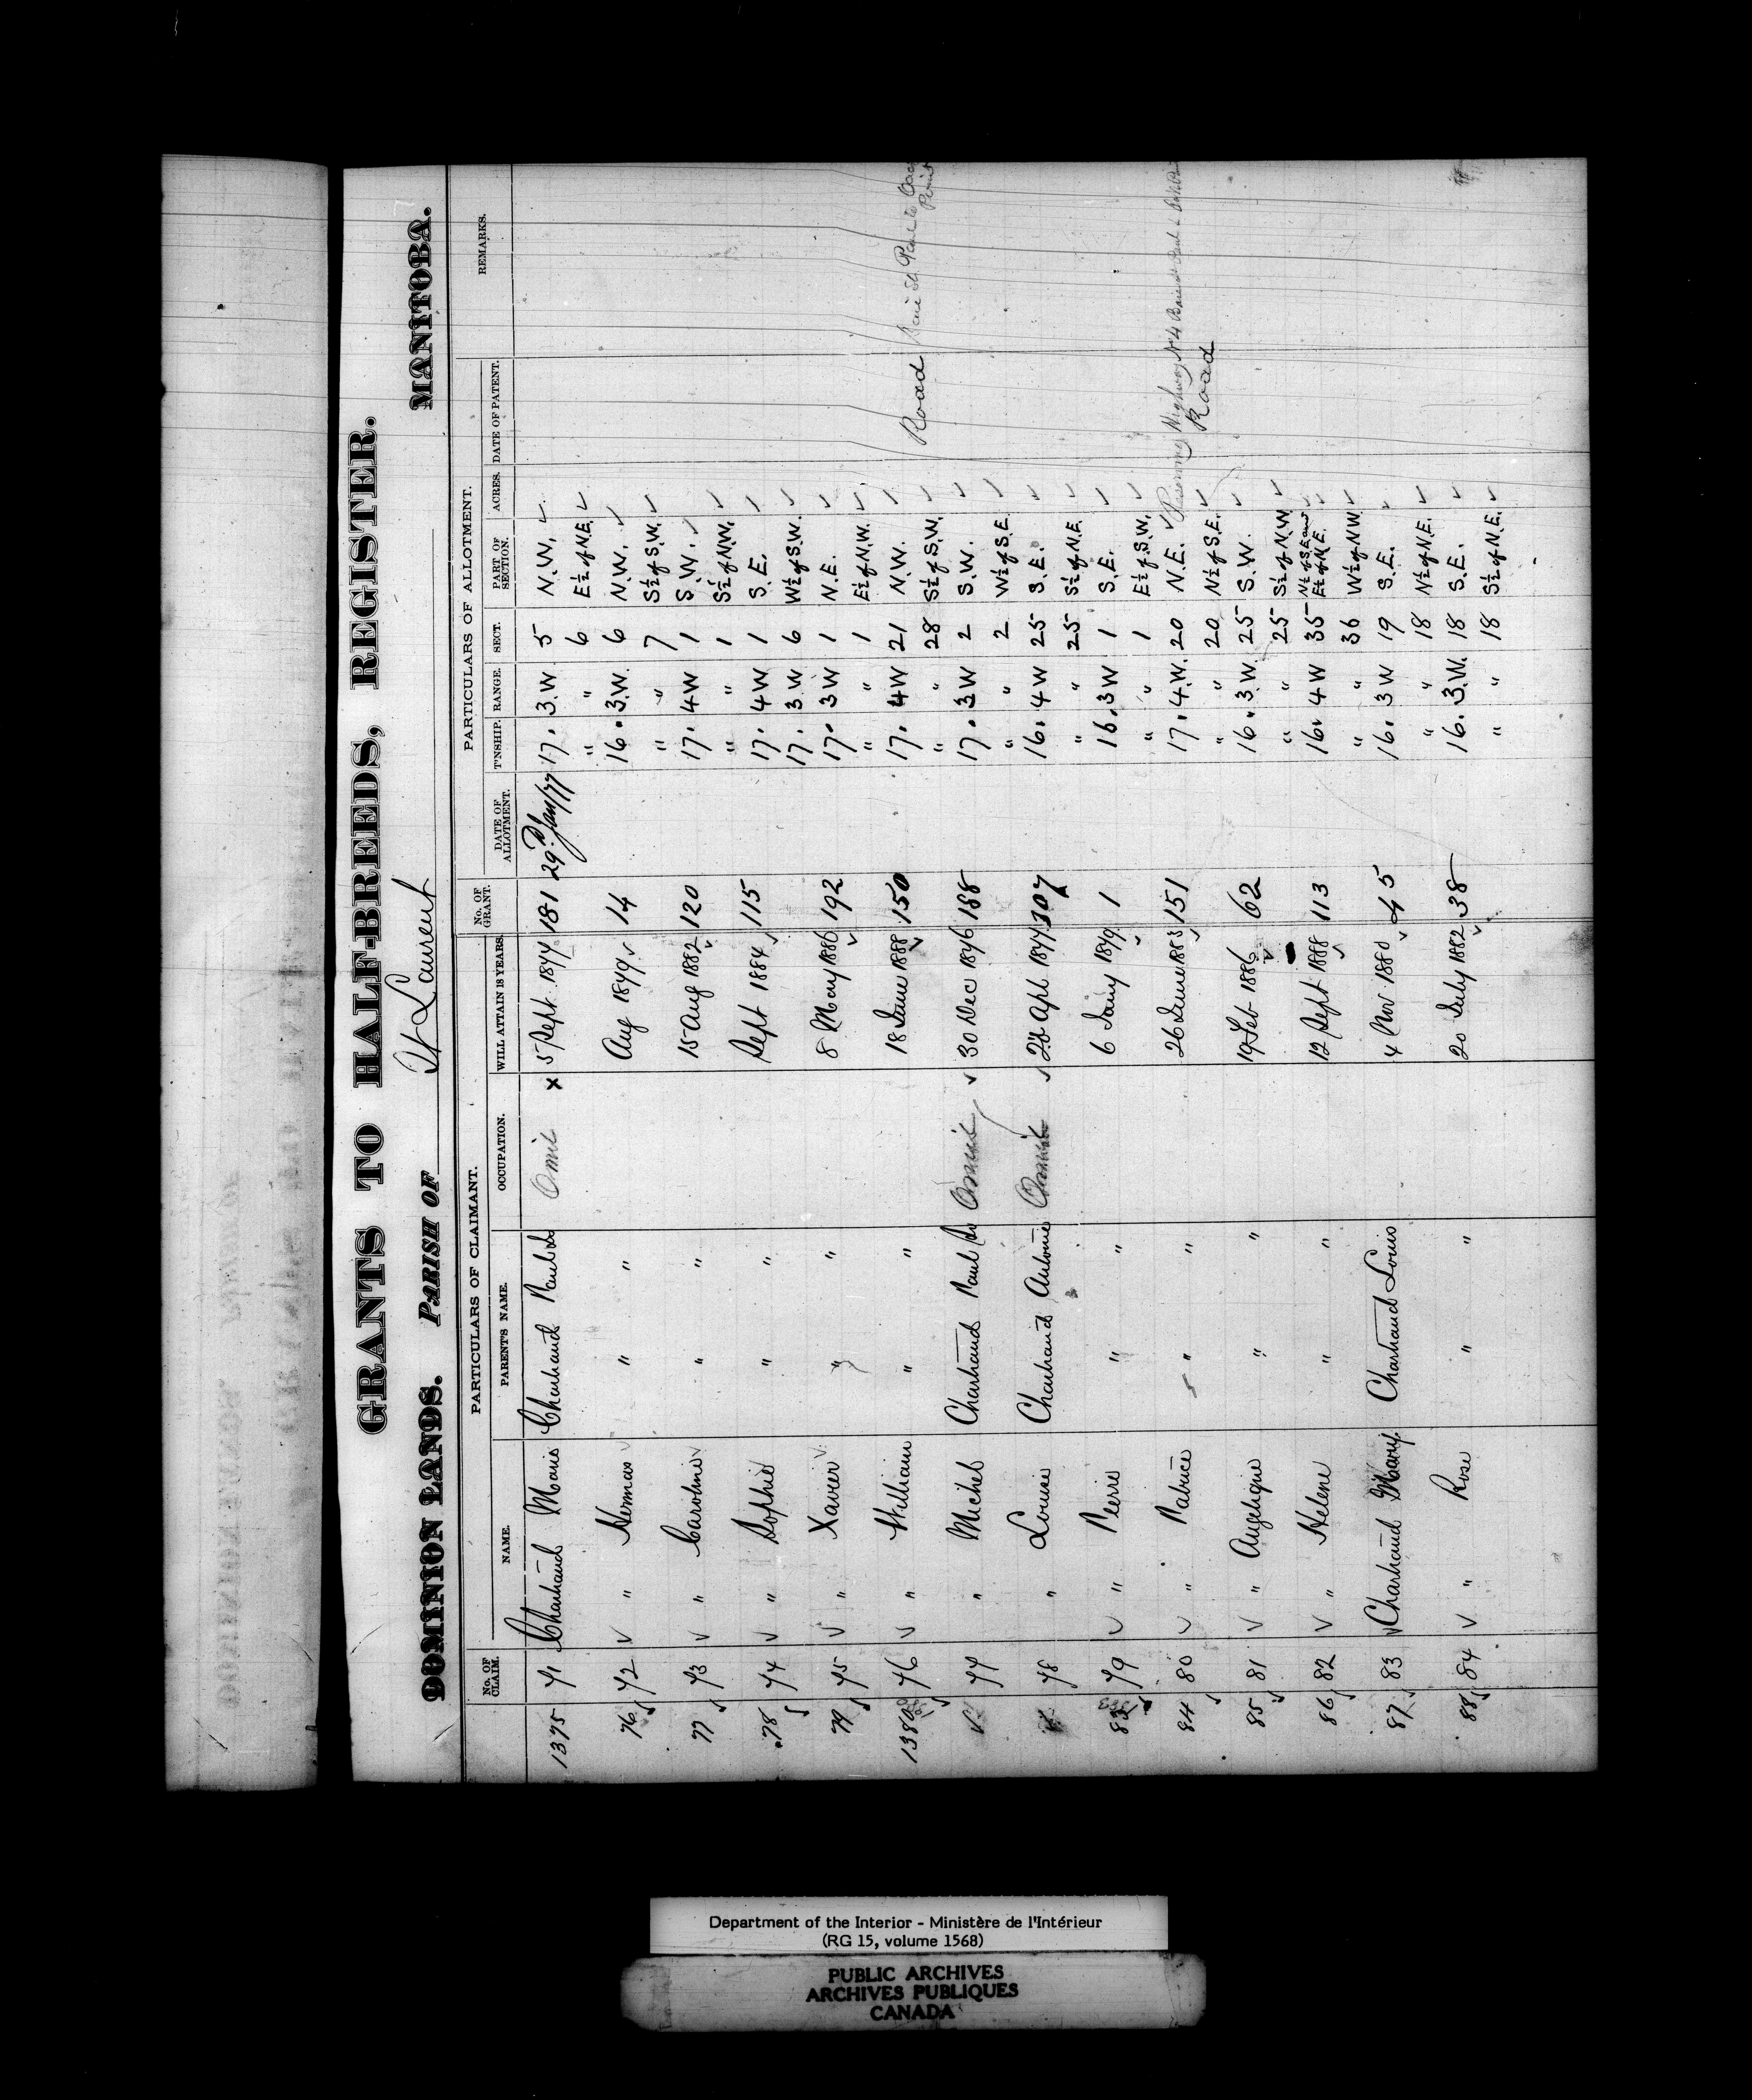 GRANTS TO HALF-BREEDS, REGISTER.
DOMINION LANDS. PARISH OF St Laurent MANITOBA.
PARTICULARS OF CLAIMANT. PARTICULARS OF ALLOTMENT.
No. OF CLAIM. NAME. PARENTS NAME. OCCUPATION. WILL ATTAIN 18 YEARS. No. OF GRANT. DATE OF ALLOTMENT. T'NSHIP. RANGE. SECT. PART OF SECTION. ACRES. DATE OF PATENT. REMARKS.
1375 71 Chartrand Marie Chartrand Paul Omit x 5 Sept. 1877 181 29th Jan/77 17. 3.W. 5 N.W. ✓
" " 6 E½ of N.E. ✓
76 72 ✓ " Norman ✓ " " Aug 1879 ✓ 14 16. 3.W. 6 N.W. ✓
" " 7 S½ of S.W. ✓
77 73 ✓ " Caroline ✓ " " 15 Aug 1882 ✓ 120 17. 4W 1 S.W. ✓
" " 1 S½ of N.W. ✓
78 74 ✓ " Sophie " " Sept 1884 ✓ 115 17. 4W 1 S.E. ✓
17. 3W 6 W½ of S.W. ✓
79 75 ✓ " Xavier ✓ " " 8 May 1886 ✓ 192 17. 3W 1 N.E. ✓
" " 1 E½ of N.W. ✓
1380 76 ✓ " William " " 18 June 1888 ✓ 150 17. 4W 21 N.W. ✓ Road
" " 28 S½ of S.W. ✓
77 " Michel Chartrand Paul Omit ✓ 30 Dec 1876 188 17. 3W 2 S.W. ✓
" " 2 W½ of S.E. ✓
78 " Louise Chartrand Antoine Omit ✓ Apl 1877 307 16. 4W 25 S.E. ✓
" " 25 S½ of N.E. ✓
83 79 ✓ " Pierre " " 6 Jany 1879 ✓ 1 16. 3W 1 S.E. ✓
" " 1 E½ of S.W. ✓
84 80 ✓ " Patrice " " 26 June 1883 ✓ 151 17. 4.W. 20 N.E. ✓ Highway No 4
" " 20 N½ of S.E. ✓ Road
85 81 ✓ " Angelique " " 19 Feb 1886 ✓ 62 16. 3.W. 25 S.W. ✓
" " 25 S½ of N.W. ✓
86 82 ✓ " Helene " " 12 Sept 1888 ✓ 113 16. 4W 35 N½ of S.E. and E½ of N.E. ✓
" " 36 W½ of N.W. ✓
87 83 ✓ Chartrand Mary Chartrand Louis 4 Nov 1880 ✓ 45 16. 3W 19 S.E. ✓
" " 18 N½ of N.E. ✓
88 84 ✓ " Rose " " 20 July 1882 ✓ 38 16. 3.W. 18 S.E. ✓
" " 18 S½ of N.E. ✓
Department of the Interior - Ministère de l'Intérieur
(RG 15, volume 1568)
PUBLIC ARCHIVES
ARCHIVES PUBLIQUES
CANADA